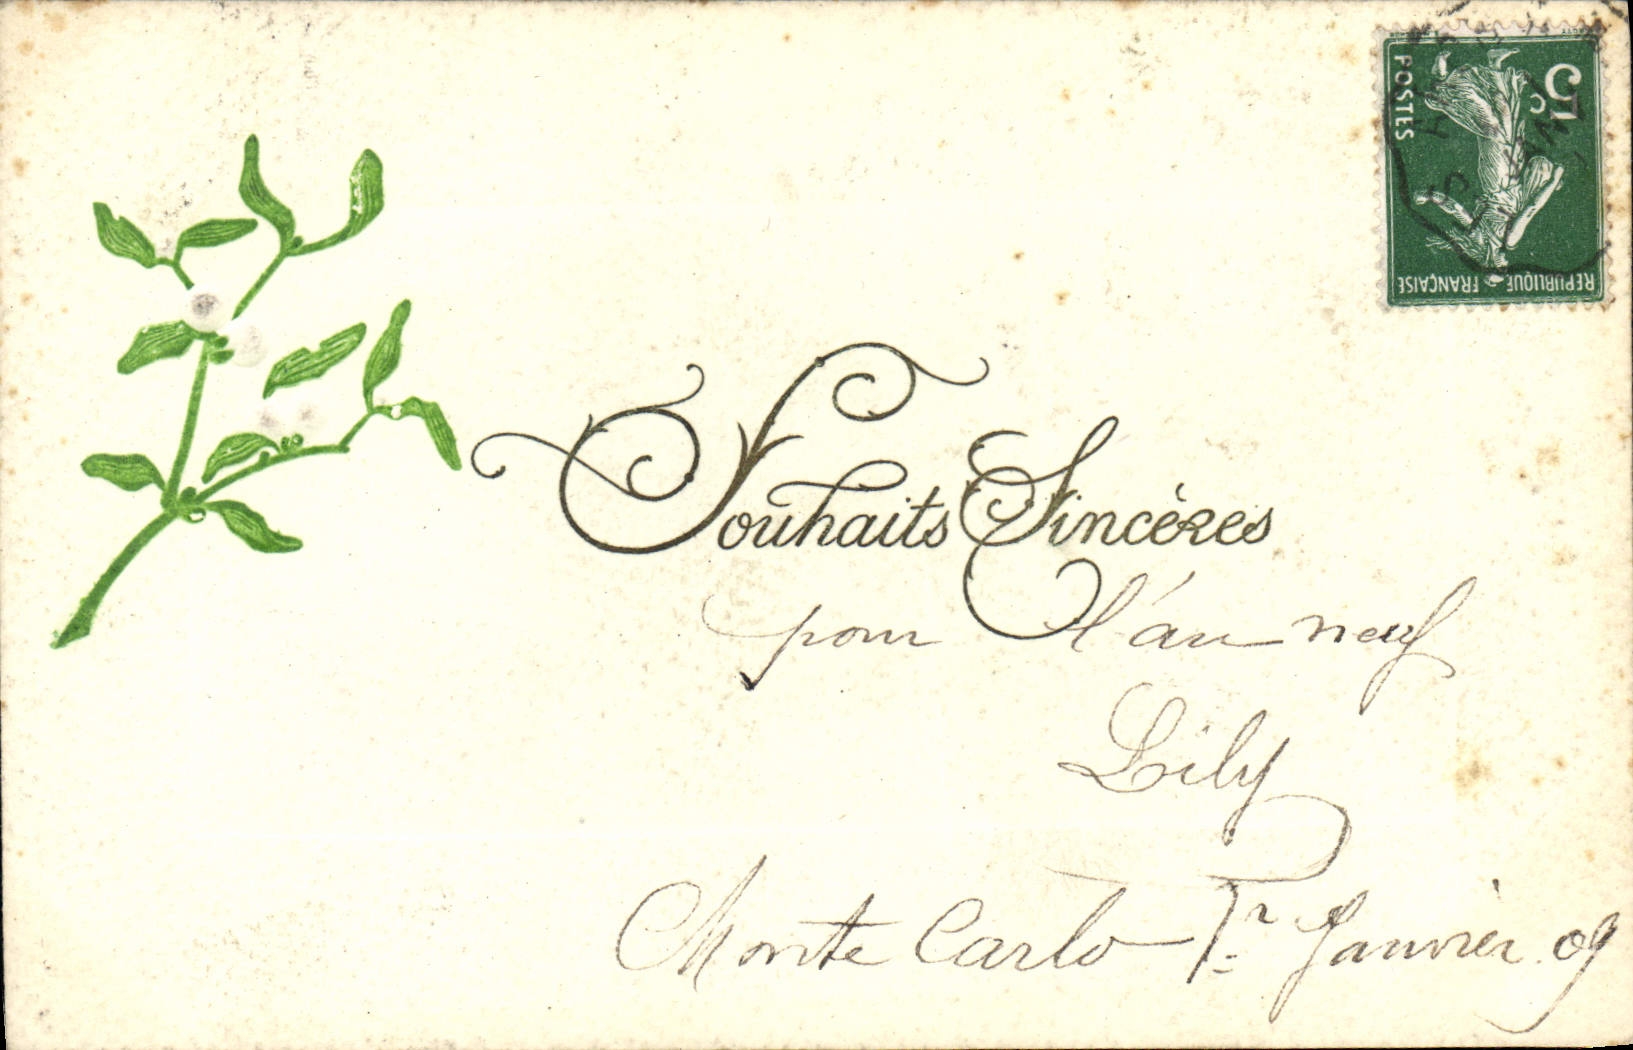 5c
POSTES
REPUBLIQUE FRANÇAISE
Souhaits Sincères
pour l'an neuf
Lily
Monte Carlo 1r Janvier 09